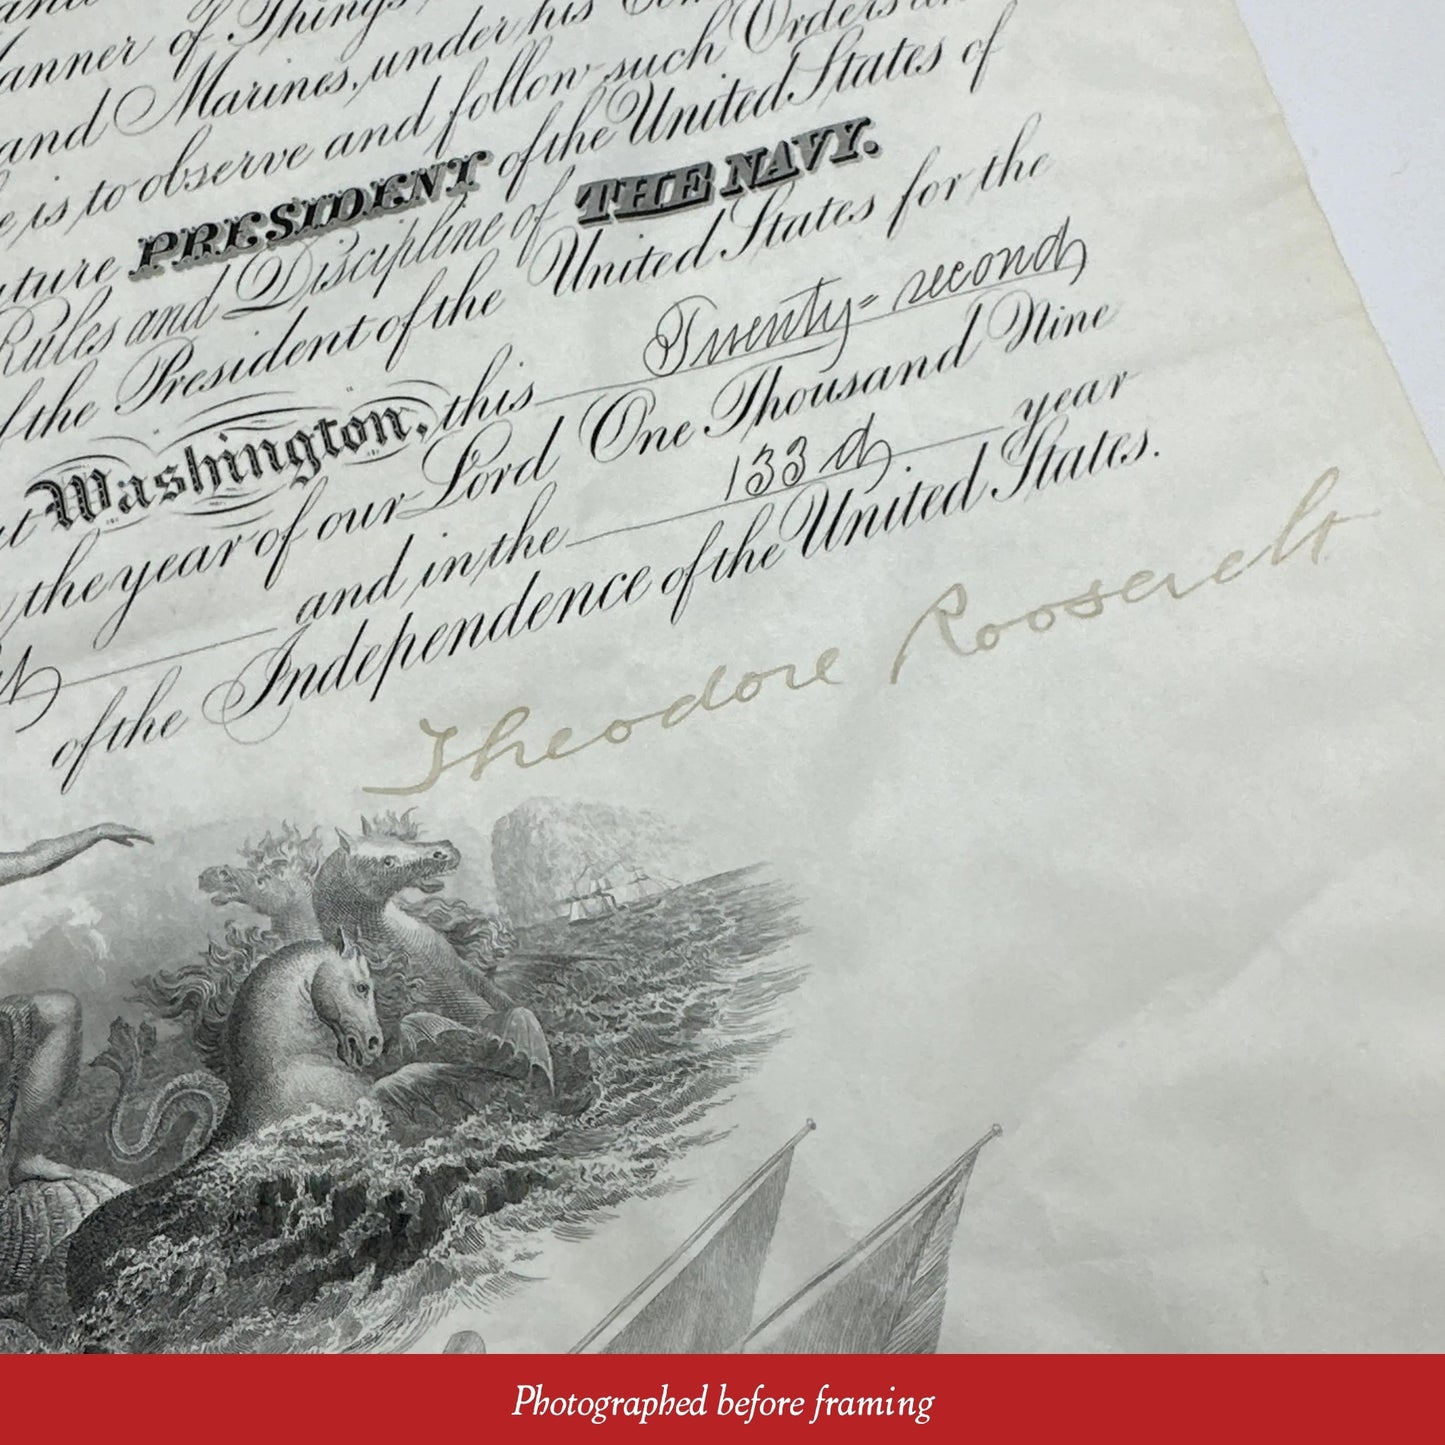 anner of Things
and Marines, under his
is to observe and follow such Orders
uture PRESIDENT of the United States of
Rules and Discipline of THE NAVY.
f the President of the United States for the
Washington, this Twenty-second
the year of our Lord One Thousand Nine
and in the 133d. year
of the Independence of the United States.
Theodore Roosevelt
Photographed before framing